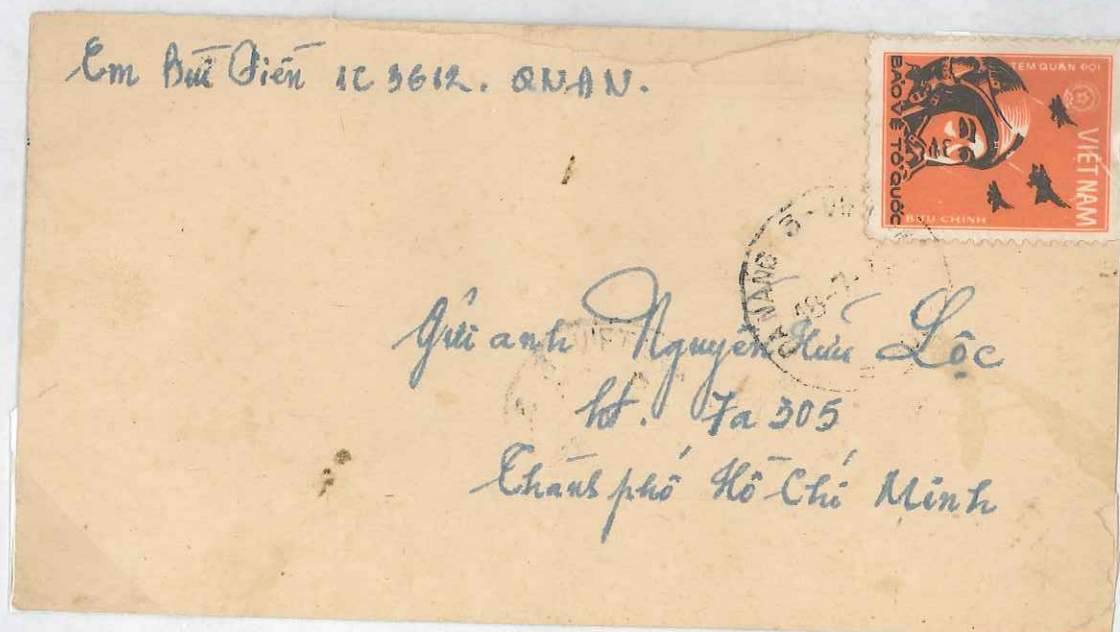 Em Bùi Diễn 1C 3612. QNĐN.
TEM QUÂN ĐỘI
VIỆT NAM
BẢO VỆ TỔ QUỐC
BƯU CHÍNH
ĐÀ NẴNG 3
Gửi anh Nguyễn Hữu Lộc
ht. 7a 305
Thành phố Hồ Chí Minh